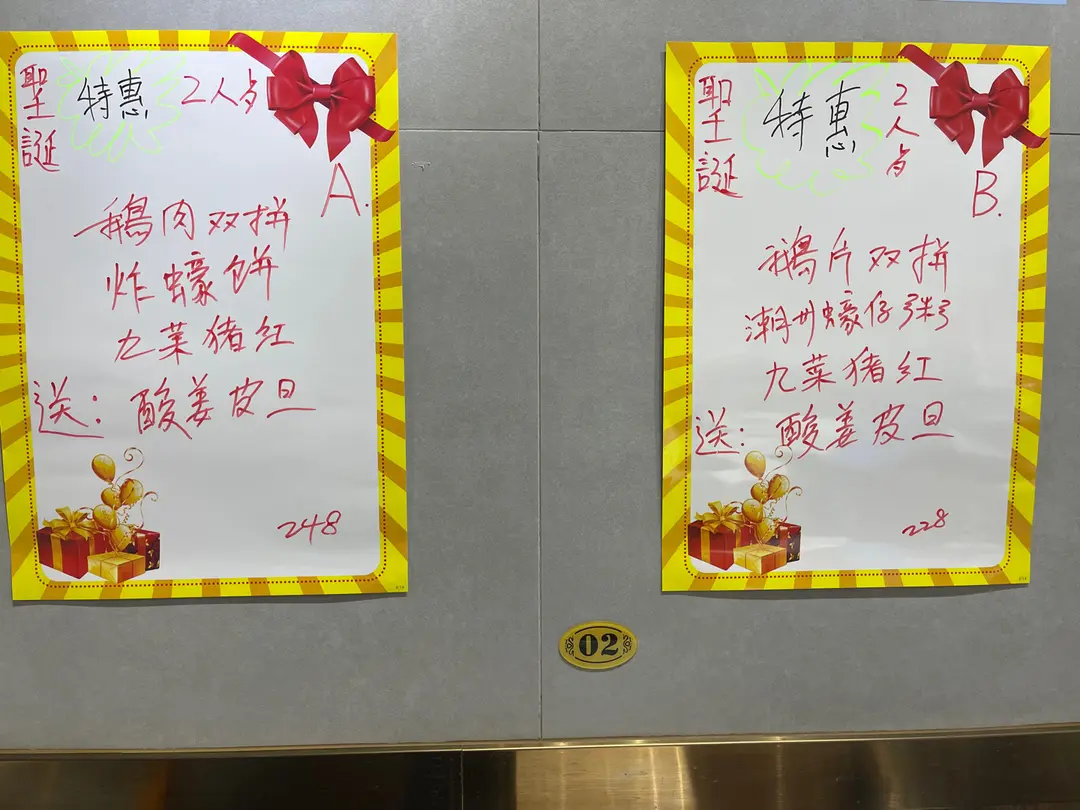 聖誕
特惠
2人歺
A.
鵝肉双拼
炸蠔餅
九菜猪红
送：酸姜皮旦
248
聖誕
特惠
2人歺
B.
鵝片双拼
潮州蠔仔粥
九菜猪红
送：酸姜皮旦
228
02